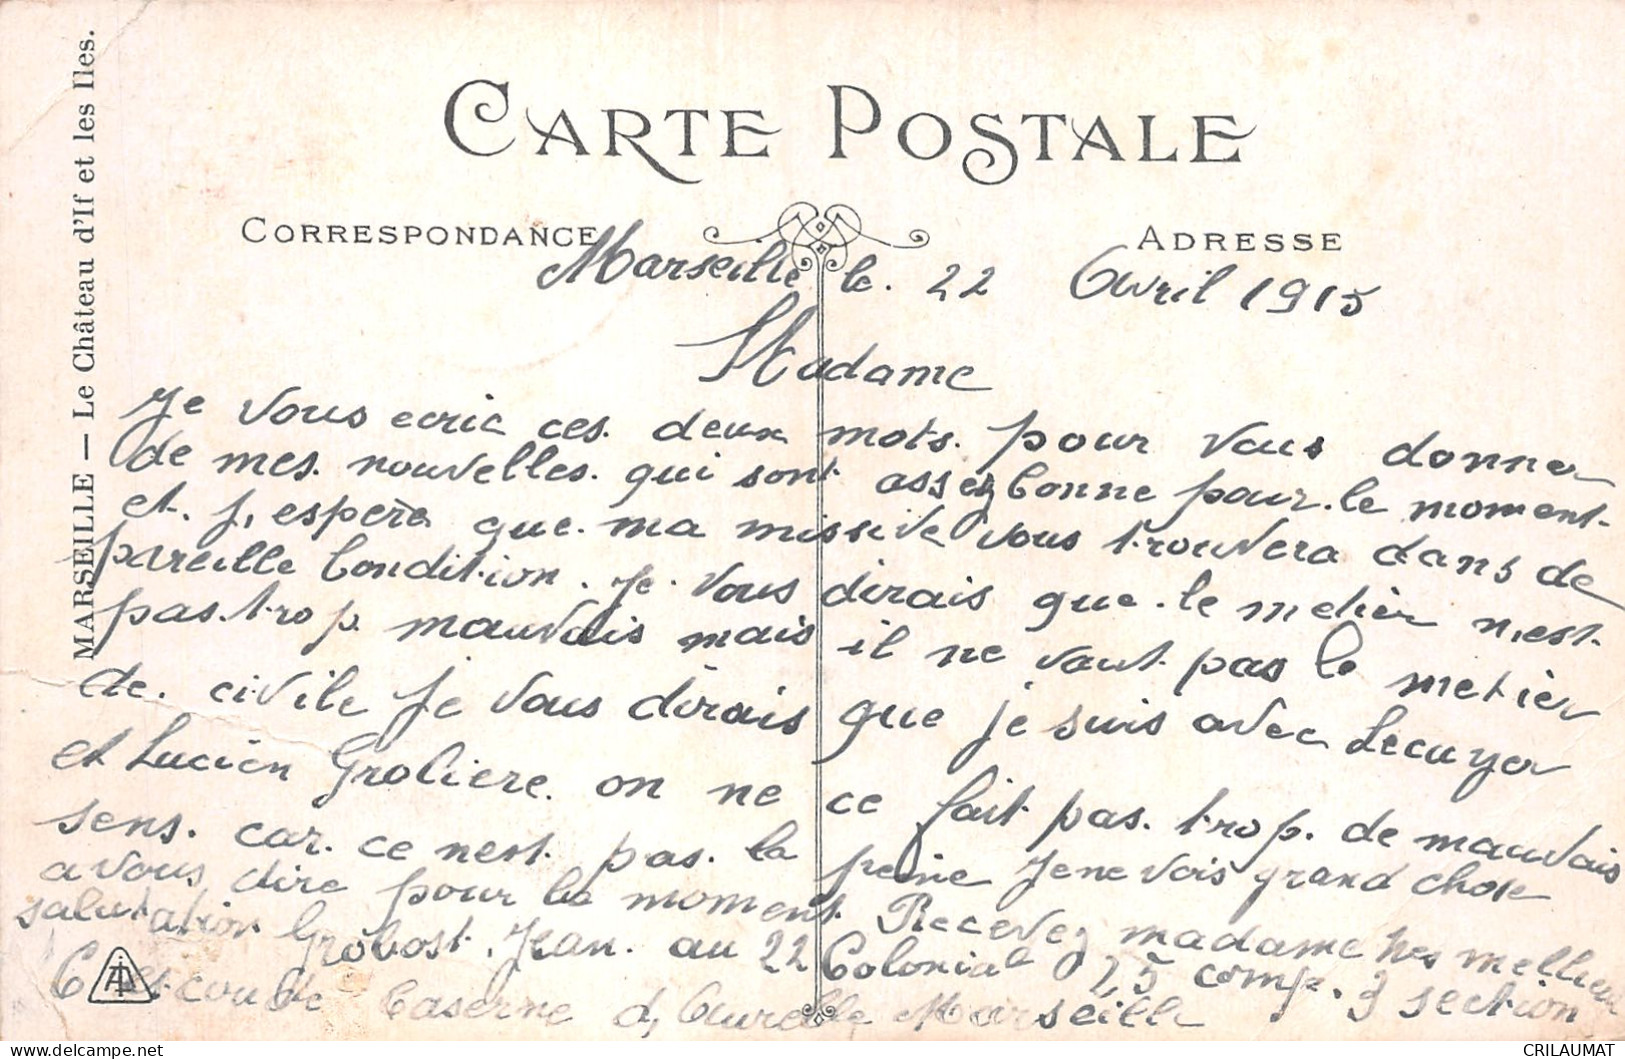 MARSEILLE — Le Château d'If et les Iles.
CARTE POSTALE
CORRESPONDANCE
ADRESSE
Marseille le. 22 Avril 1915
Madame
Je vous ecric ces. deux mots. pour vous donner
de mes. nouvelles. qui sont assez bonne pour. le moment.
et. j, espère que. ma missive vous trouvera dans de
pareille Condition. Je. vous dirais que. le metier n,est.
pas. trop mauvais mais il ne vaut pas le metièr
de. civile Je vous dirais que je suis avec Lecuyer
et Lucièn Groliere. on ne ce fait pas. trop. de mauvais
sens. car. ce nest. pas. la peine Je ne vois grand chose
a vous dire pour le moment Recevez madame mes
salutation Grobost. Jean. au 22 Colonial 25 comp. 3 section
Caserne d, Aurelle Marseille
CRILAUMAT